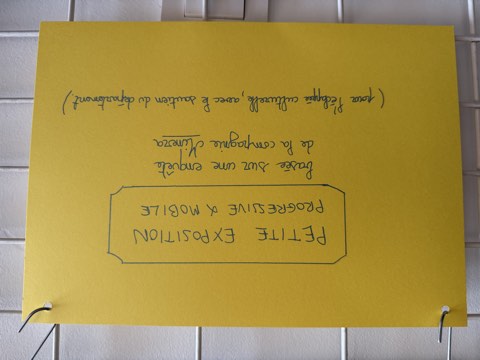 PETITE EXPOSITION
PROGRESSIVE & MOBILE
basée sur une enquête
de la compagnie Numesa
(pour l'échappée culturelle, avec le soutien du département)